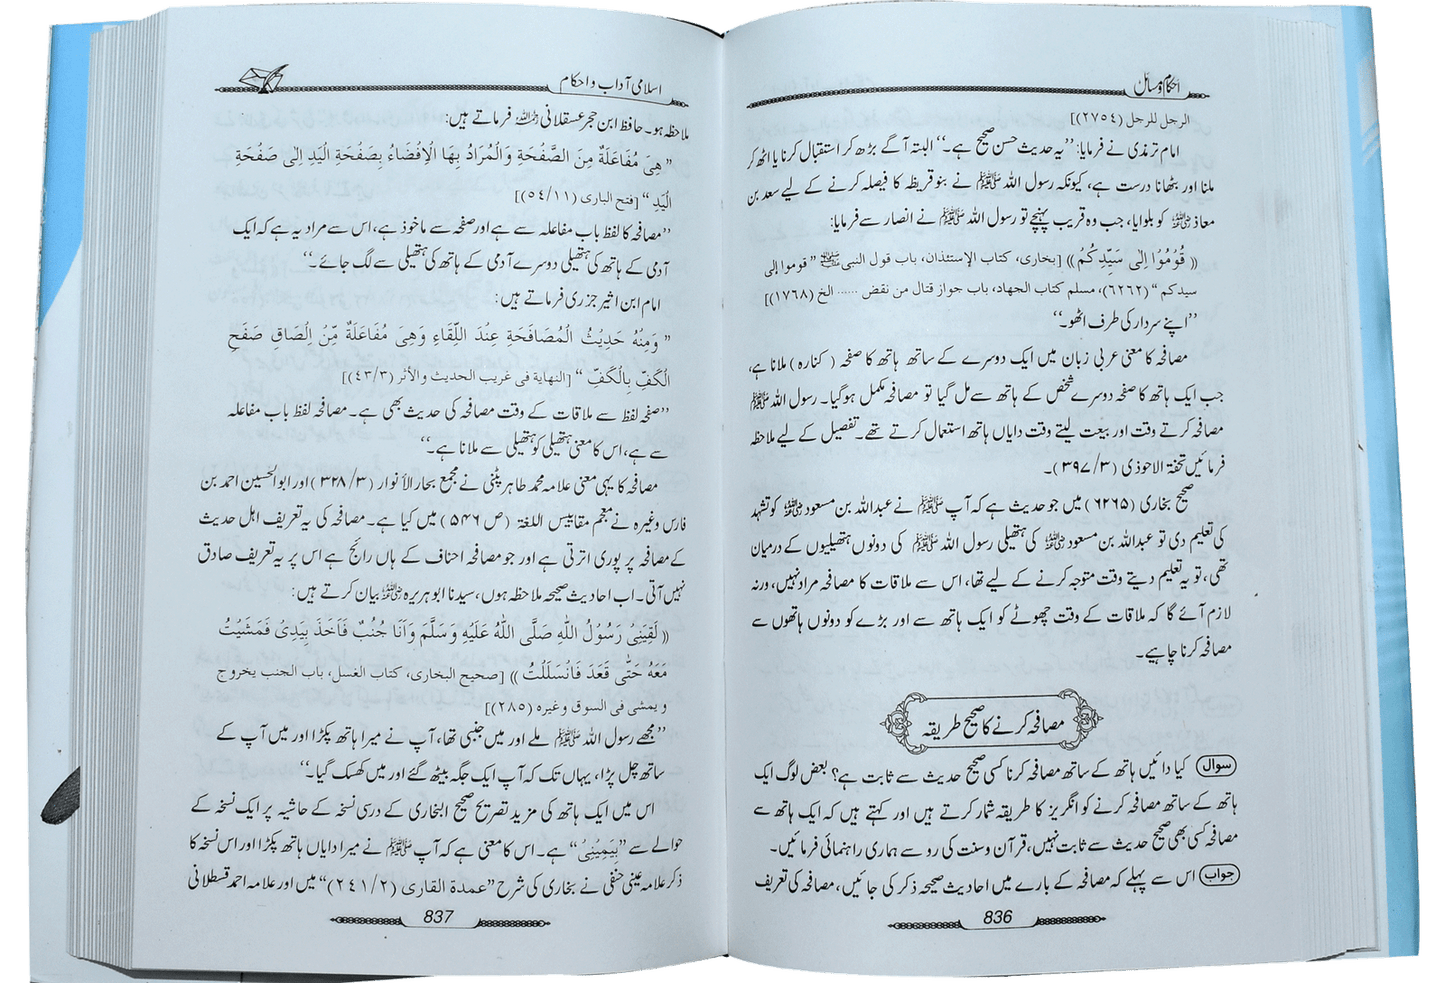 احکام و مسائل
الرجل للرجل (٢٧٥٤)]
امام ترمذی نے فرمایا: ’’یہ حدیث حسن صحیح ہے۔‘‘ البتہ آگے بڑھ کر استقبال کرنا یا اٹھ کر
ملنا اور بٹھانا درست ہے، کیونکہ رسول اللہ ﷺ نے بنو قریظہ کا فیصلہ کرنے کے لیے سعد بن
معاذ رضی اللہ عنہ کو بلوایا، جب وہ قریب پہنچے تو رسول اللہ ﷺ نے انصار سے فرمایا:
(( قُوْمُوْا اِلٰى سَيِّدِكُمْ )) [بخاری، کتاب الإستئذان، باب قول النبی ﷺ " قوموا إلی
سیدکم " (٦٢٦٢)، مسلم کتاب الجهاد، باب جواز قتال من نقض ...... الخ (١٧٦٨)]
’’اپنے سردار کی طرف اٹھو۔‘‘
مصافحہ کا معنی عربی زبان میں ایک دوسرے کے ساتھ ہاتھ کا صفحہ ( کنارہ ) ملانا ہے،
جب ایک ہاتھ کا صفحہ دوسرے شخص کے ہاتھ سے مل گیا تو مصافحہ مکمل ہو گیا۔ رسول اللہ ﷺ
مصافحہ کرتے وقت اور بیعت لیتے وقت دایاں ہاتھ استعمال کرتے تھے۔ تفصیل کے لیے ملاحظہ
فرمائیں تحفۃ الاحوذی (۳/ ۳۹۷)۔
صحیح بخاری (۶۲۶۵) میں جو حدیث ہے کہ آپ ﷺ نے عبداللہ بن مسعود رضی اللہ عنہ کو تشہد
کی تعلیم دی تو عبداللہ بن مسعود رضی اللہ عنہ کی ہتھیلی رسول اللہ ﷺ کی دونوں ہتھیلیوں کے درمیان
تھی، تو یہ تعلیم دیتے وقت متوجہ کرنے کے لیے تھا، اس سے ملاقات کا مصافحہ مراد نہیں، ورنہ
لازم آئے گا کہ ملاقات کے وقت چھوٹے کو ایک ہاتھ سے اور بڑے کو دونوں ہاتھوں سے
مصافحہ کرنا چاہیے۔
مصافحہ کرنے کا صحیح طریقہ
سوال کیا دائیں ہاتھ کے ساتھ مصافحہ کرنا کسی صحیح حدیث سے ثابت ہے؟ بعض لوگ ایک
ہاتھ کے ساتھ مصافحہ کرنے کو انگریز کا طریقہ شمار کرتے ہیں اور کہتے ہیں کہ ایک ہاتھ سے
مصافحہ کسی بھی صحیح حدیث سے ثابت نہیں، قرآن وسنت کی رو سے ہماری راہنمائی فرمائیں۔
جواب اس سے پہلے کہ مصافحہ کے بارے میں احادیث صحیحہ ذکر کی جائیں، مصافحہ کی تعریف
836
اسلامی آداب و احکام
ملاحظہ ہو۔ حافظ ابن حجر عسقلانی رحمہ اللہ فرماتے ہیں:
" هِىَ مُفَاعَلَةٌ مِنَ الصَّفْحَةِ وَالْمُرَادُ بِهَا الْاِفْضَاءُ بِصَفْحَةِ الْيَدِ اِلٰى صَفْحَةِ
الْيَدِ " [فتح الباری (١١/ ٥٤)]
’’مصافحہ کا لفظ باب مفاعلہ سے ہے اور صفحہ سے ماخوذ ہے، اس سے مراد یہ ہے کہ ایک
آدمی کے ہاتھ کی ہتھیلی دوسرے آدمی کے ہاتھ کی ہتھیلی سے لگ جائے۔‘‘
امام ابن اثیر جزری فرماتے ہیں:
" وَمِنْهُ حَدِيْثُ الْمُصَافَحَةِ عِنْدَ اللِّقَاءِ وَهِىَ مُفَاعَلَةٌ مِّنْ اِلْصَاقِ صَفْحِ
الْكَفِّ بِالْكَفِّ " [النهاية فی غریب الحدیث والأثر (٣/ ٤٣)]
’’صفح لفظ سے ملاقات کے وقت مصافحہ کی حدیث بھی ہے۔ مصافحہ لفظ باب مفاعلہ
سے ہے، اس کا معنی ہتھیلی کو ہتھیلی سے ملانا ہے۔‘‘
مصافحہ کا یہی معنی علامہ محمد طاہر پٹنی نے مجمع بحار الأنوار (۳/ ۳۲۸) اور ابو الحسین احمد بن
فارس وغیرہ نے معجم مقاییس اللغۃ (ص ۵۴۶) میں کیا ہے۔ مصافحہ کی یہ تعریف اہل حدیث
کے مصافحہ پر پوری اترتی ہے اور جو مصافحہ احناف کے ہاں رائج ہے اس پر یہ تعریف صادق
نہیں آتی۔ اب احادیث صحیحہ ملاحظہ ہوں، سیدنا ابوہریرہ رضی اللہ عنہ بیان کرتے ہیں:
(( لَقِيَنِىْ رَسُوْلُ اللّٰهِ صَلَّى اللّٰهُ عَلَيْهِ وَسَلَّمَ وَاَنَا جُنُبٌ فَاَخَذَ بِيَدِىْ فَمَشَيْتُ
مَعَهٗ حَتّٰى قَعَدَ فَانْسَلَلْتُ )) [صحیح البخاری، کتاب الغسل، باب الجنب یخروج
و یمشی فی السوق وغیره (٢٨٥)]
’’مجھے رسول اللہ ﷺ ملے اور میں جنبی تھا، آپ نے میرا ہاتھ پکڑا اور میں آپ کے
ساتھ چل پڑا، یہاں تک کہ آپ ایک جگہ بیٹھ گئے اور میں کھسک گیا۔‘‘
اس میں ایک ہاتھ کی مزید تصریح صحیح البخاری کے درسی نسخہ کے حاشیہ پر ایک نسخہ کے
حوالے سے ’’بِيَمِيْنِىْ‘‘ ہے۔ اس کا معنی ہے کہ آپ ﷺ نے میرا دایاں ہاتھ پکڑا اور اس نسخہ کا
ذکر علامہ عینی حنفی نے بخاری کی شرح ’’عمدۃ القاری (۲/ ۲۴۱)‘‘ میں اور علامہ احمد قسطلانی
837